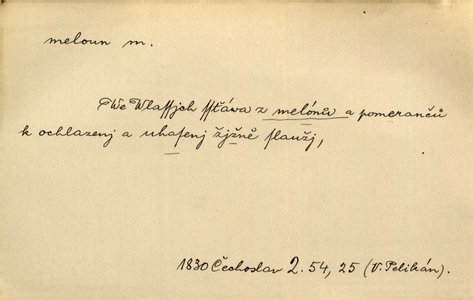 meloun m.
We Wlassjch ssťáwa z melónů a pomerančů
k ochlazenj a uhasenj žjžně slaužj,
1830 Čechoslav 2. 54, 25 (V. Pelikán).